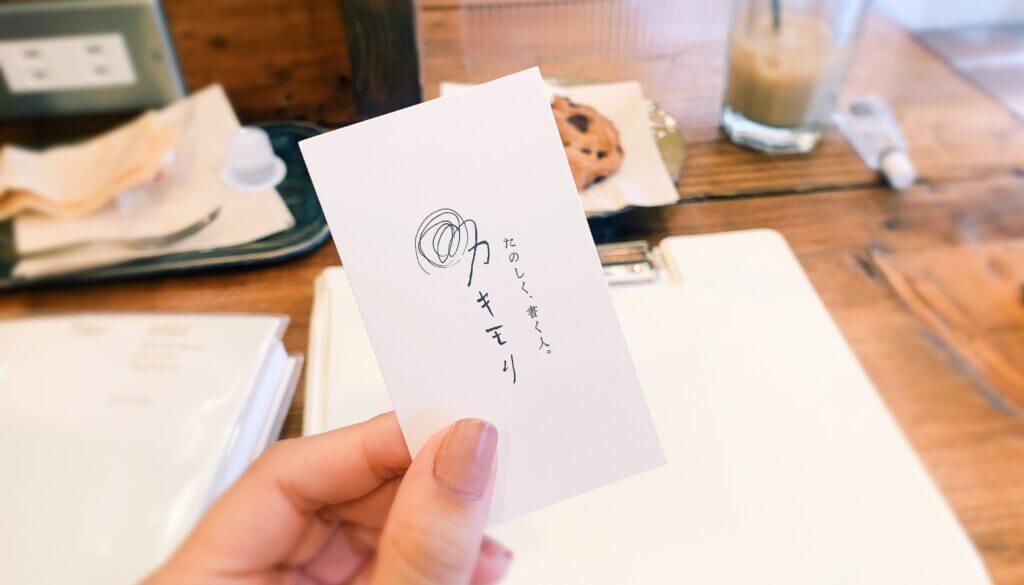 たのしく、書く人。
カキモリ